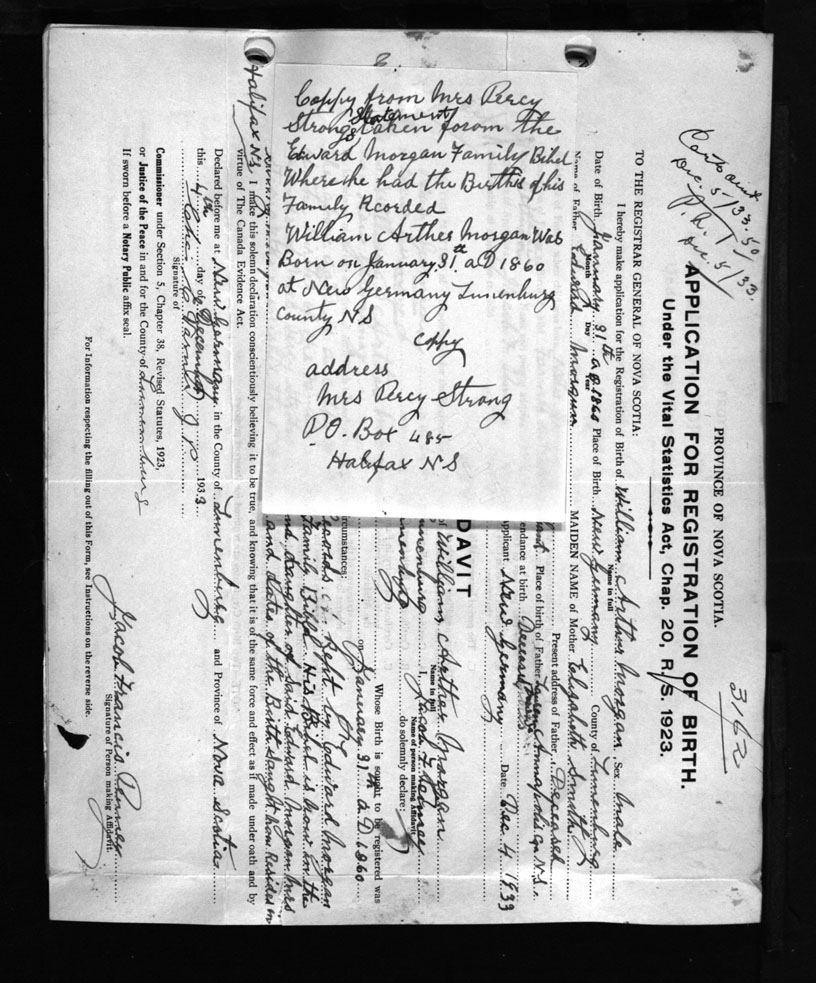 Coppy from Mrs Percy
Strongs Statement taken forom the
Edward Morgan Family Bibel
Where he had the Births of his
Family Rcorded
William Arther Morgan Was
Born on January 31th aD 1860
at New Germany Lunenburg
County NS
Coppy
address
Mrs Percy Strong
P.O. Box 485
Halifax NS
3162
Dec. 5/33. 50
P.A.
Dec 5/33.
PROVINCE OF NOVA SCOTIA.
APPLICATION FOR REGISTRATION OF BIRTH.
Under the Vital Statistics Act, Chap. 20, R. S. 1923.
TO THE REGISTRAR GENERAL OF NOVA SCOTIA:
I hereby make application for the Registration of Birth of William Arther Morgan Sex Male
Name in full
Date of Birth January 31th aD 1860 Place of Birth New Germany County of Lunenburg
Month Day Year
Name of Father Edward Morgan MAIDEN NAME of Mother Elizabeth Smith
Present address of Father Deceased
Place of birth of Father Annapolis Co N.S.
endance at birth Deceased
pplicant New Germany Date Dec 4 1933
DAVIT
of William Arther Morgan
Name in full
unenburg I, Jacob F Penney
Name of person making Affidavit
do solemnly declare:
Whose Birth is sought to be registered was
on January 31th aD 1860
rcumstances:
Records Kept by Edward Morgan
Family Bibel His Bibel is Now in the
and daughter of Said Edward Morgan Mrs
and dates of the Birth Saught how Resides in
Halifax NS I make this solemn declaration conscientiously believing it to be true, and knowing that it is of the same force and effect as if made under oath and by
virtue of The Canada Evidence Act.
Declared before me at New Germany in the County of Lunenburg and Province of Nova Scotia
this 4th day of December 1933
Signature of
Commissioner under Section 5, Chapter 38, Revised Statutes, 1923,
or Justice of the Peace in and for the County of Lunenburg
If sworn before a Notary Public affix seal.
Jacob Francis Penney
Signature of Person making Affidavit.
For Information respecting the filling out of this Form, see Instructions on the reverse side.